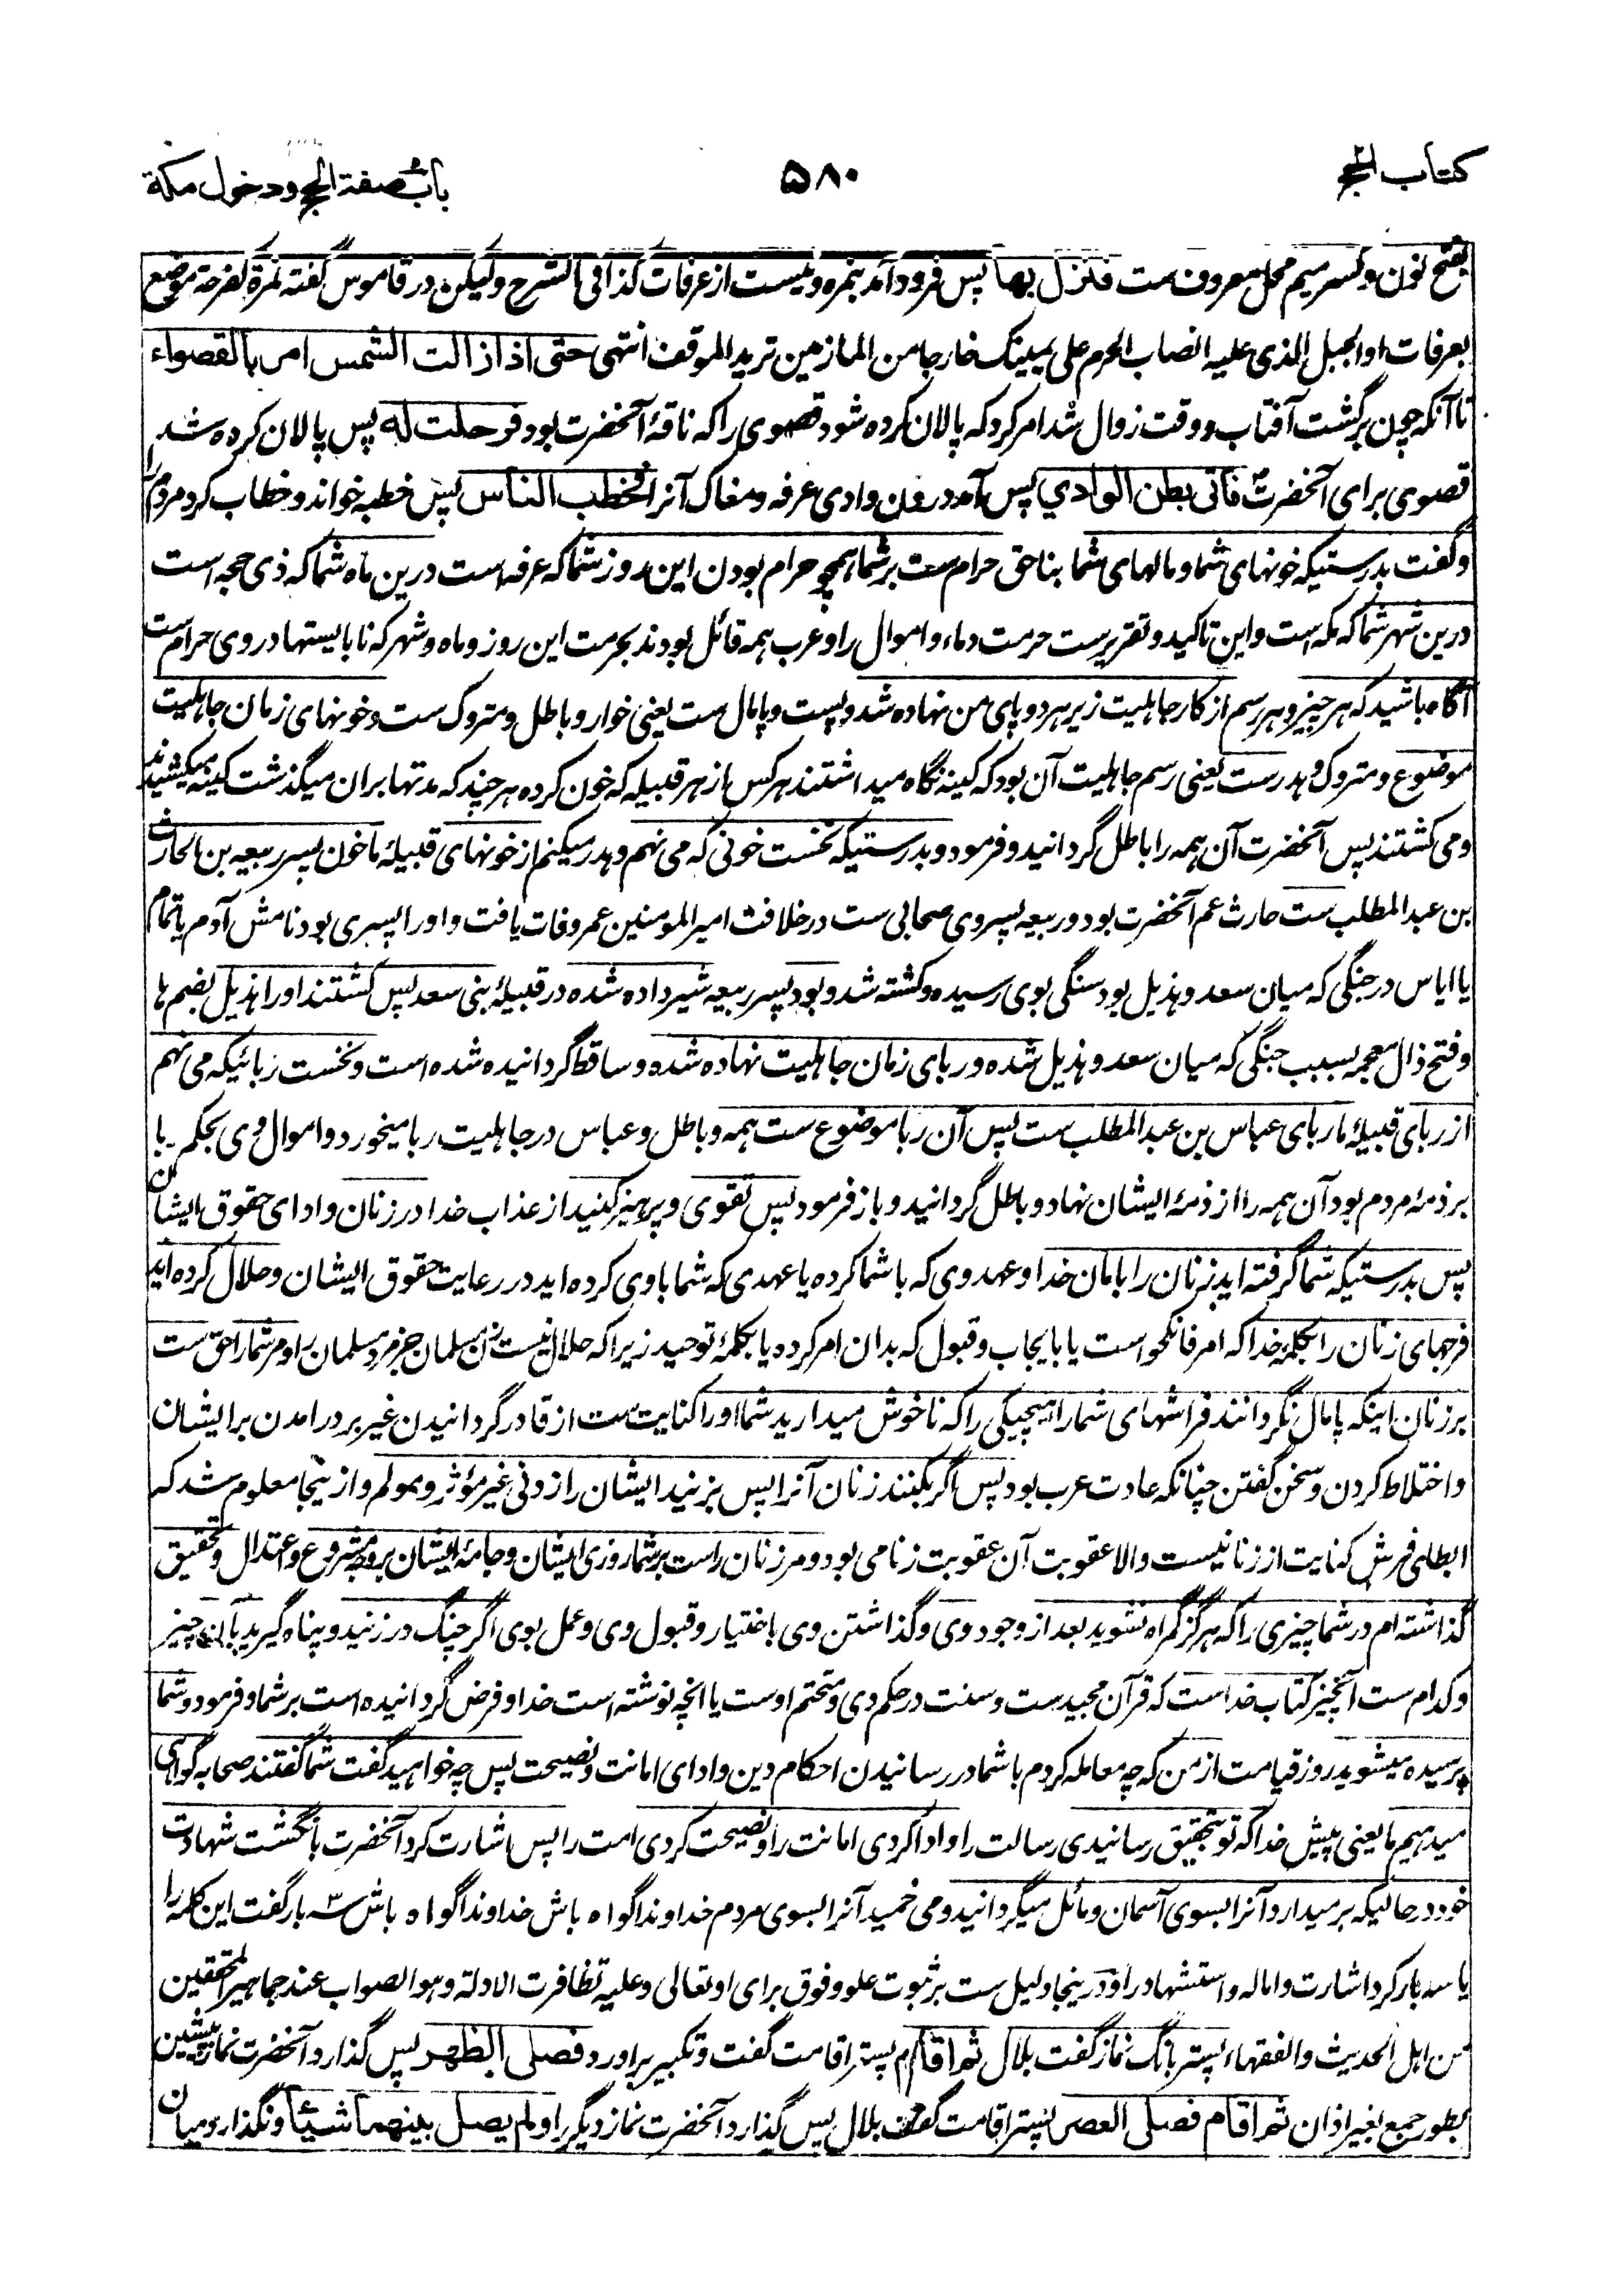 کتاب الحج
۵۸۰
باب صفة الحج ودخول مکة
بفتح نون و کسر میم محل معروف ست فنزل بها پس فرود آمد بنمره و نیست از عرفات کذا فی الشرح ولیکن در قاموس گفته نمرة کفرحة موضع
بعرفات او الجبل الذی علیه انصاب الحرم علی یمینک خارجا من المازمین ترید الموقف انتهی حتی اذا زالت الشمس امر بالقصواء
تا آنکه چون برگشت آفتاب و وقت زوال شد امر کرد که پالان کرده شود قصوی را که ناقۀ آنحضرت بود فرحلت له پس پالان کرده شد
قصوی برای آنحضرت فاتی بطن الوادي پس آمد درون وادی عرفه و مغاک آنرا فخطب الناس پس خطبه خواند و خطاب کرد مردم را
و گفت بدرستیکه خونهای شما و مالهای شما بناحق حرام ست بر شما همچو حرام بودن این روز شما که عرفه است درین ماه شما که ذی حجه است
درین شهر شما که مکه است و این تاکید و تقریر ست حرمت دماء و اموال را و عرب همه قائل بودند بحرمت این روز و ماه و شهر که نابایستها در وی حرام ست
آگاه باشید که هر چیز و هر رسم از کار جاهلیت زیر هر دو پای من نهاده شد و پست و پامال ست یعنی خوار و باطل و متروک ست و خونهای زمان جاهلیت
موضوع و متروک و هدر ست یعنی رسم جاهلیت آن بود که کینه نگاه میداشتند هر کس از هر قبیله که خون کرده هر چند که مدتها بران میگذشت کینه میکشیدند
و می کشتند پس آنحضرت آن همه را باطل گردانید و فرمود و بدرستیکه نخست خونی که می نهم و هدر میکنم از خونهای قبیلۀ ما خون پسر ربیعه بن الحارث
بن عبد المطلب ست حارث عم آنحضرت بود و ربیعه پسر وی صحابی ست در خلافت امیر المومنین عمر وفات یافت و او را پسری بود نامش آدم یا تمام
یا ایاس در جنگی که میان سعد و هذیل بود سنگی بوی رسیده و کشته شد و بود پسر ربیعه شیر داده شده در قبیلۀ بنی سعد پس کشتند او را هذیل بضم ها
و فتح ذال معجمه بسبب جنگی که میان سعد و هذیل شده و ربای زمان جاهلیت نهاده شده و ساقط گردانیده شده است و نخست ربائیکه می نهم
از ربای قبیلۀ ما ربای عباس بن عبد المطلب ست پس آن ربا موضوع ست همه و باطل و عباس در جاهلیت ربا میخورد و اموال وی بحکم ربا
بر ذمۀ مردم بود آن همه را از ذمۀ ایشان نهاد و باطل گردانید و باز فرمود پس تقوی و پرهیز کنید از عذاب خدا در زنان و ادای حقوق ایشان
پس بدرستیکه شما گرفته اید زنان را بامان خدا و عهد وی که با شما کرده یا عهدی که شما باوی کرده اید در رعایت حقوق ایشان و حلال کرده اید
فرجهای زنان را بکلمۀ خدا که امر فانکحوا ست یا بایجاب و قبول که بدان امر کرده یا بکلمۀ توحید زیرا که حلال نیست زن مسلمان جز مرد مسلمان را و مر شما را حق ست
بر زنان اینکه پامال نگردانند فراشهای شما را هیچیکی را که ناخوش میدارید شما او را کنایت ست از قادر گردانیدن غیر بر درامدن بر ایشان
و اختلاط کردن و سخن گفتن چنانکه عادت عرب بود پس اگر بکنند زنان آنرا پس بزنید ایشان را زدنی غیر مؤثر و مولم و ازینجا معلوم شد که
ایطای فرش کنایت از زنا نیست والا عقوبت آن عقوبت زنا می بود و مر زنان راست بر شما روزی ایشان و جامۀ ایشان بر وجه مشروع و اعتدال و تحقیق
گذاشته ام در شما چیزی را که هرگز گمراه نشوید بعد از وجود وی و گذاشتن وی باختیار و قبول وی و عمل بوی اگر چنگ در زنید و پناه گیرید بآن چیز
و کدام ست آنچیز کتاب خداست که قرآن مجید ست و سنت در حکم وی و متحتم اوست یا انچه نوشته است خدا و فرض گردانیده است بر شما و فرمود و شما
پرسیده میشوید روز قیامت از من که چه معامله کردم با شما در رسانیدن احکام دین و ادای امانت و نصیحت پس چه خواهید گفت شما گفتند صحابه گواهی
میدهیم ما یعنی پیش خدا که تو بتحقیق رسانیدی رسالت را و ادا کردی امانت را و نصیحت کردی امت را پس اشارت کرد آنحضرت بانگشت شهادت
خود در حالیکه بر میدارد آنرا بسوی آسمان و مائل میگردانید و می خمید آنرا بسوی مردم خداوندا گواه باش خداوندا گواه باش سه بار گفت این کلمه را
یا سه بار کرد اشارت و اماله و استشهاد را و درینجا دلیل ست بر ثبوت علو و فوق برای او تعالی و علیه تظافرت الادلة و هو الصواب عند جماهیر المحققین
من اهل الحدیث والفقهاء پستر بانگ نماز گفت بلال ثم اقام پستر اقامت گفت و تکبیر براورد فصلی الظهر پس گذارد آنحضرت نماز پیشین
بطور جمع بغیر اذان ثم اقام فصلی العصر پستر اقامت گفت بلال پس گذارد آنحضرت نماز دیگر را و لم یصل بینهما شیئا و نگذارد میان